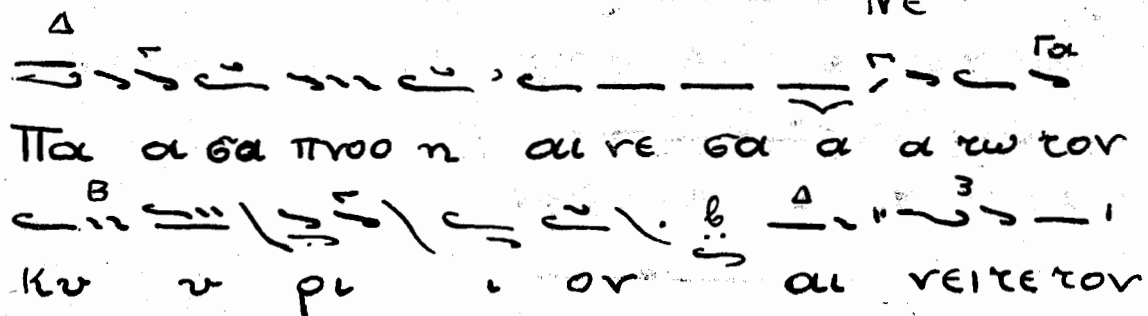 νε
Πα α σα πνοο η αι νε σα α α τω τον
Κυ υ ρι ι ον αι νειτε τον